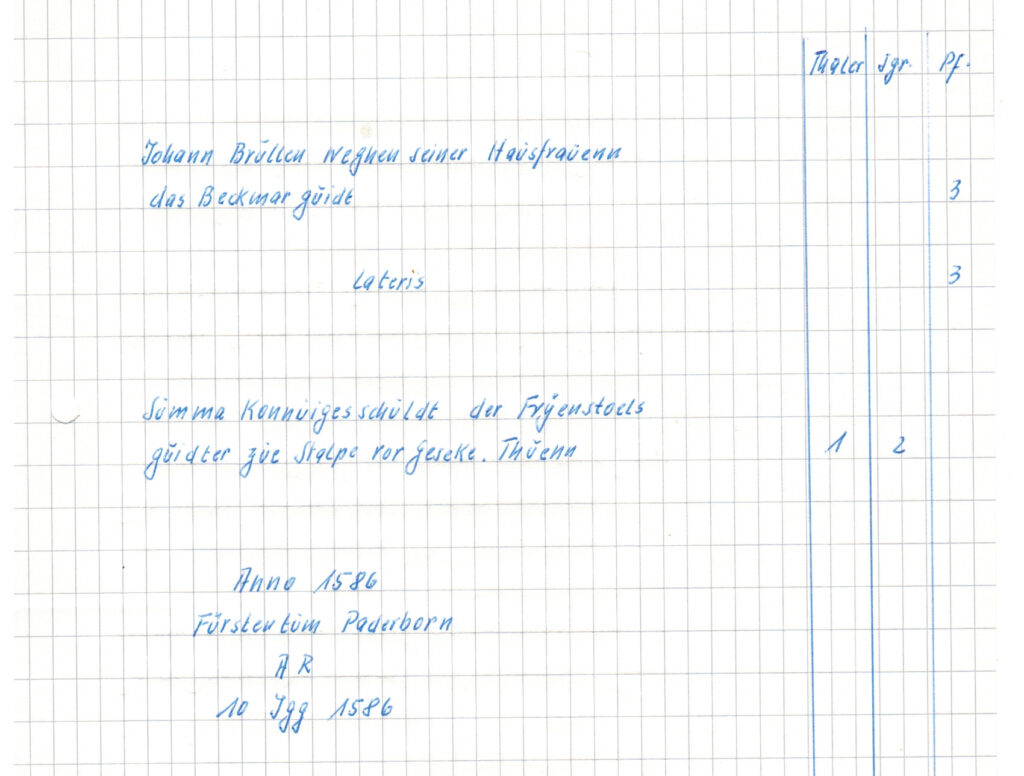 Thaler Sgr. Pf.
Johann Brüllen weghen seiner Haüsfraüenn
das Beckmar güidt 3
Lateris 3
Sümma Konnüigesschüldt der Frÿenstoels
güidter züe Stalpe vor Geseke. Thüenn 1 2
Anno 1586
Fürstentüm Paderborn
A R
10 Jgg 1586